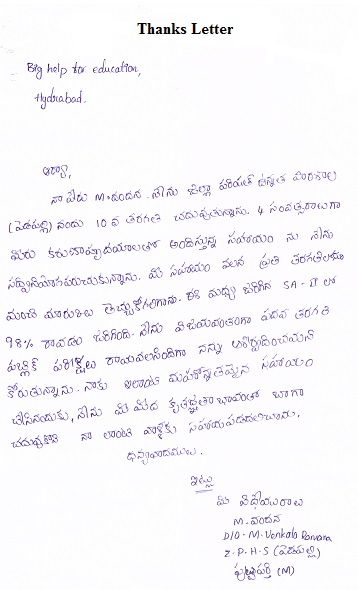 Thanks Letter
Big help for education,
Hydrabad.
ఆర్యా,
నా పేరు M.వందన. నేను జిల్లా పరిషత్ ఉన్నత పాఠశాల
(పెడపల్లి) నందు 10 వ తరగతి చదువుతున్నాను. 4 సంవత్సరాలుగా
మీరు కరుణాహృదయాలతో అందిస్తున్న సహాయం ను నేను
సద్వినియోగపరుచుకున్నాను. మీ సహాయం వలన ప్రతి తరగతిలోనూ
మంచి మార్కులు తెచ్చుకోగలిగాను. ఈ మధ్య జరిగిన SA-II లో
98% రావడం జరిగింది. నేను విజయవంతంగా పదవ తరగతి
పబ్లిక్ పరీక్షలు రాయవలసిందిగా నన్ను ఆశీర్వదించమని
కోరుతున్నాను. నాకు ఇలాంటి మహోన్నతమైన సహాయం
చేసినందుకు, నేను మీ మీద కృతజ్ఞతా భావంతో బాగా
చదువుకొని నా లాంటి వాళ్లకు సహాయపడదలిచాను.
ధన్యవాదములు.
ఇట్లు
మీ విధేయురాలు
M. వందన
D/O - M. Venkata Ramana
Z.P.H.S (పెడపల్లి)
పుట్టపర్తి (M)